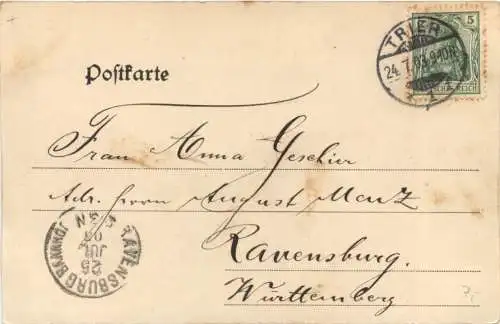 Postkarte
TRIER
24.7.03.9-10N
1
5
REICH
Frau Anna Geschier
Adr. Herrn August Menz
Ravensburg.
Württemberg
RAVENSBURG BAHNHOF
25
JUL
03